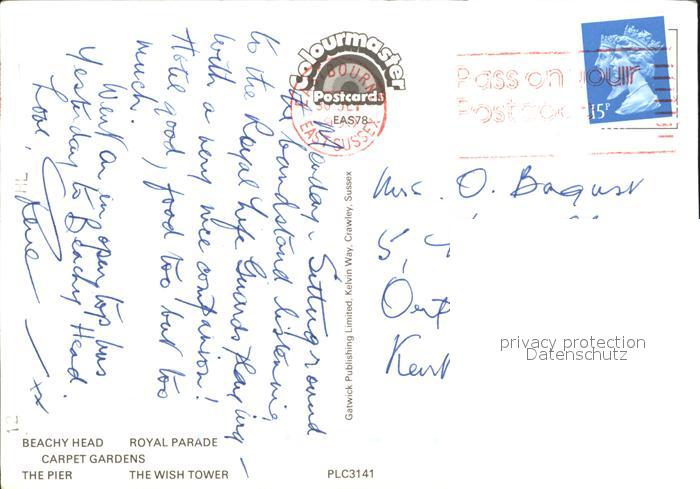 Colourmaster
Postcards
EAS78
EAST SUSSEX
Pass on your
Postcode
15P
Monday. Sitting round
the bandstand listening
to the Royal Life Guards playing –
with a very nice companion!
Hotel good, food too but too
much.
Went on in open top bus
Yesterday to Beachy Head.
Love,
xx
Gatwick Publishing Limited, Kelvin Way, Crawley, Sussex
Mrs. O. Bagust
5,
Kent
privacy protection
Datenschutz
12
BEACHY HEAD ROYAL PARADE
CARPET GARDENS
THE PIER THE WISH TOWER
PLC3141